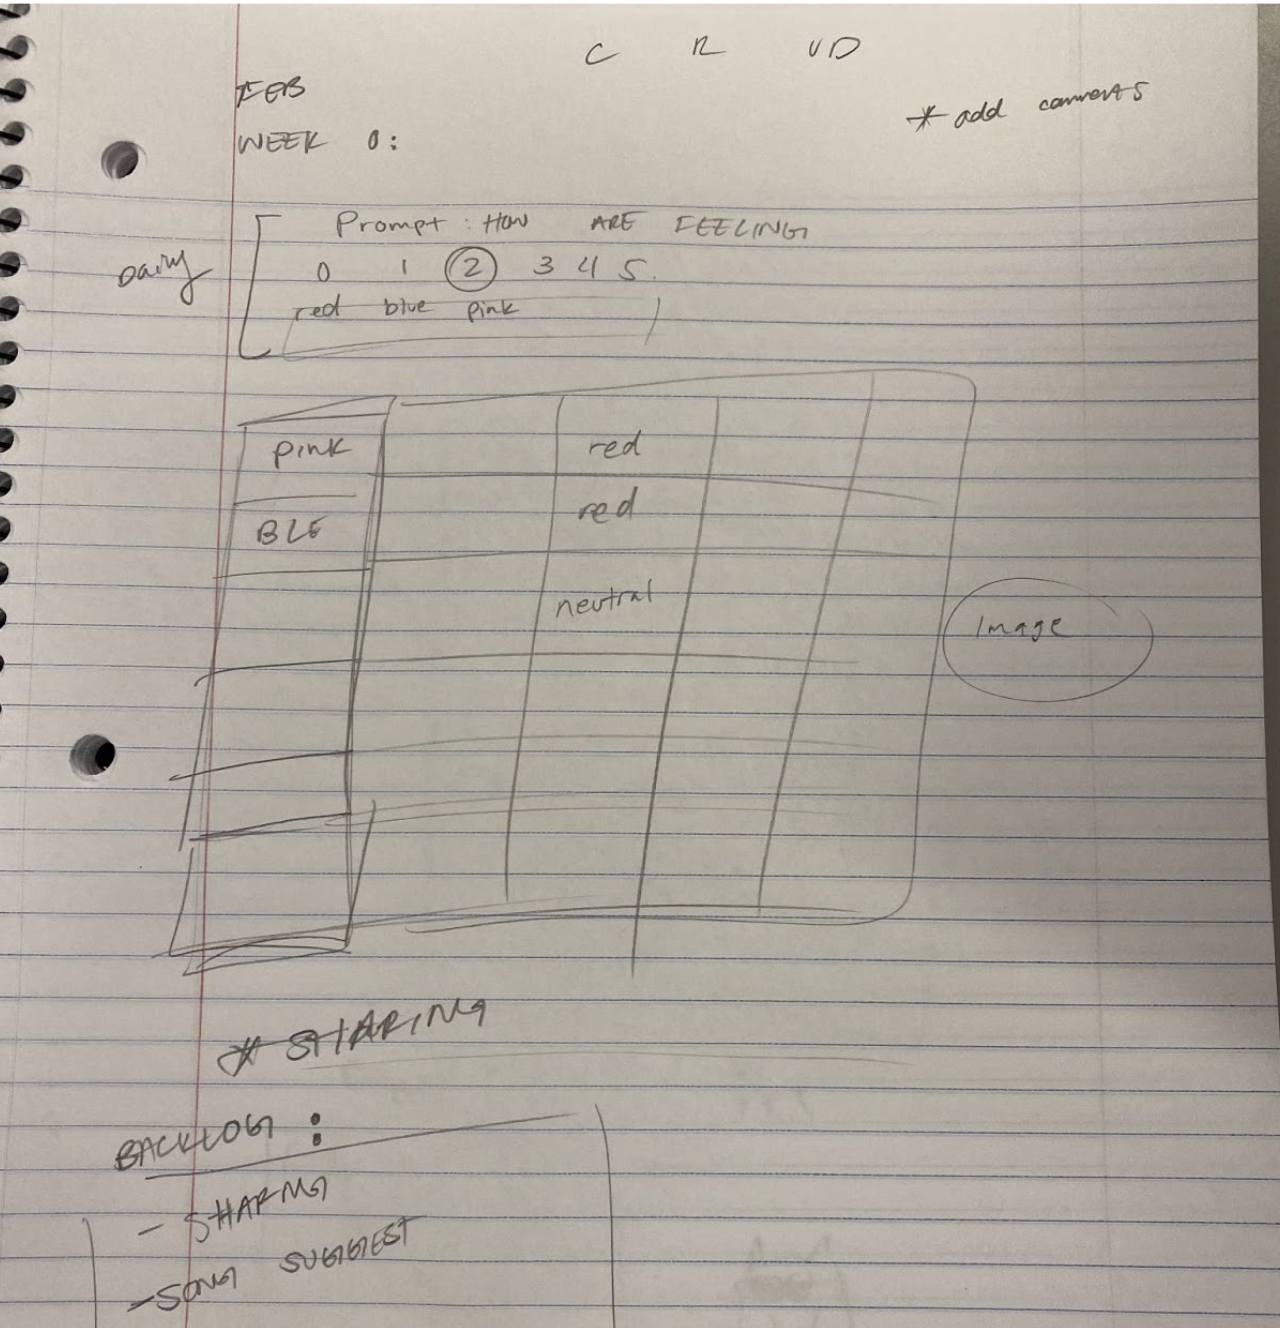 C R UD
FEB
* add comments
WEEK 0:
Prompt : HOW ARE FEELING
Daily
0 1 2 3 4 5.
red blue pink
pink red
BLE red
neutral
Image
* SHARING
BACKLOG :
- SHARNG
- SONG SUGGEST